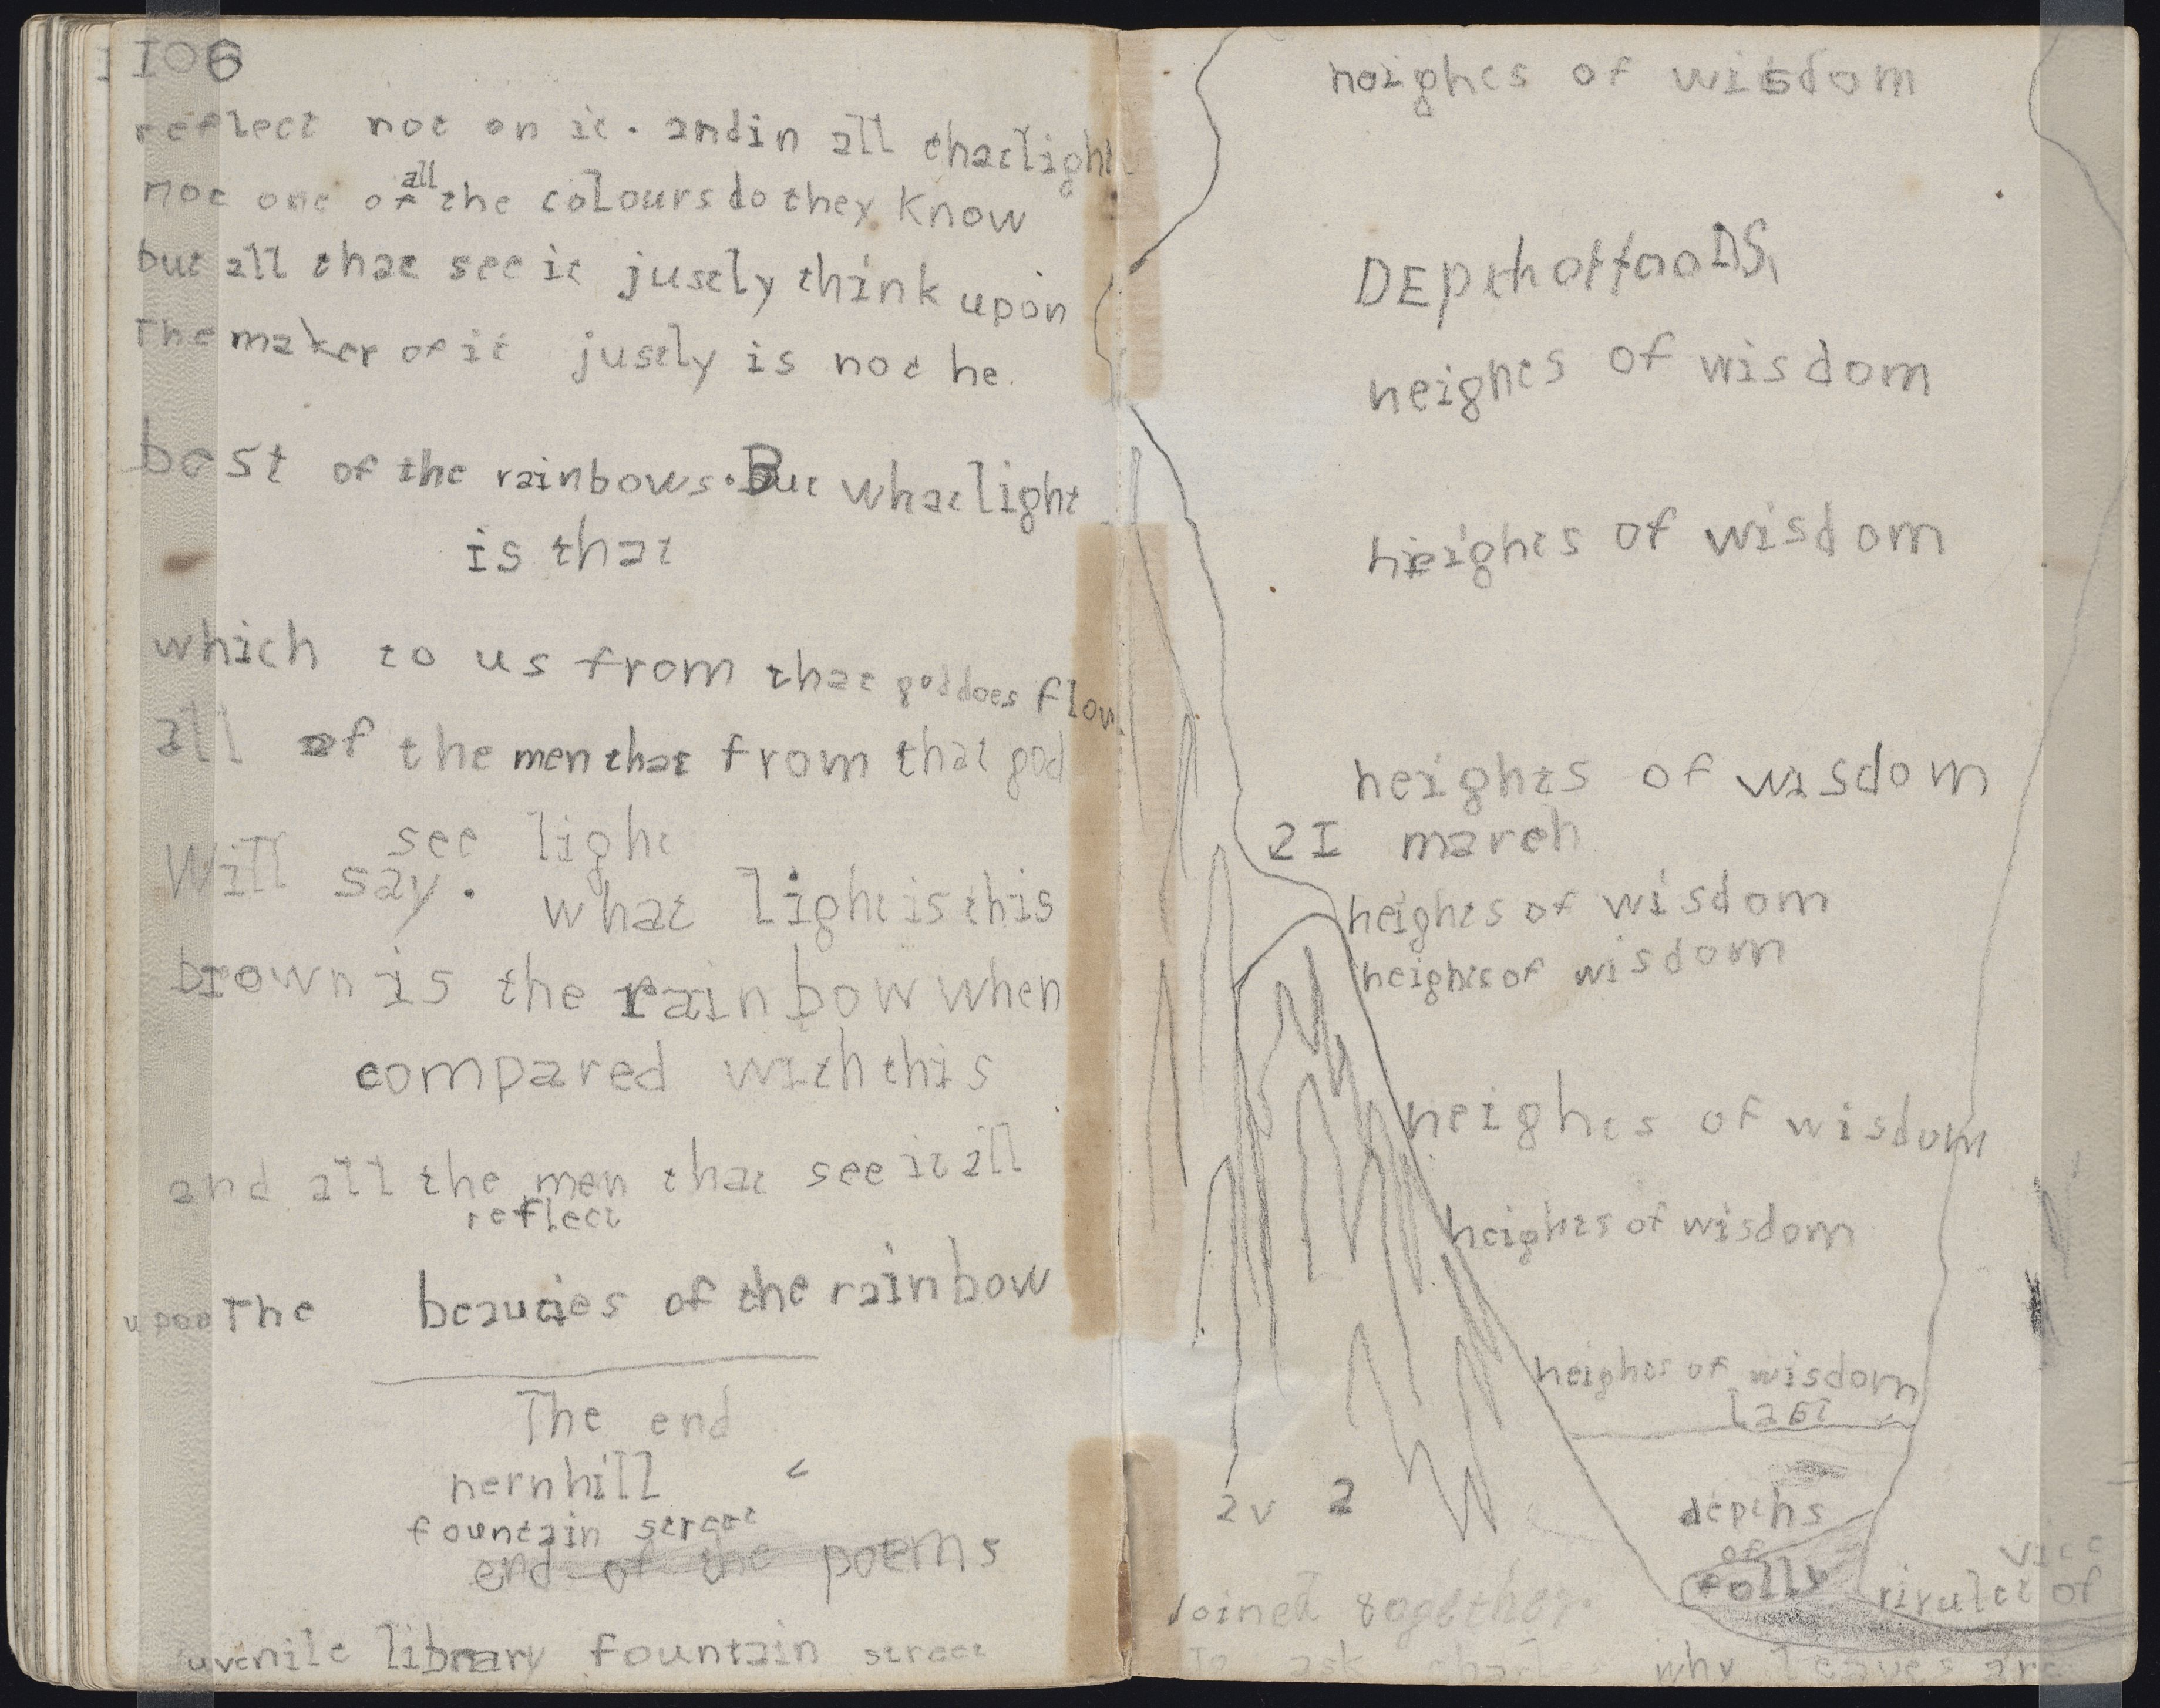 106
reflect not on it. and in all that light
not one of all the colours do they know
but all that see it justly think upon
The maker of it justly is not he.
best of the rainbows. But what light
is that
which to us from that god does flow
all of the men that from that god
see light
Will say. what light is this
brown is the rainbow when
compared with this
and all the men that see it all
reflect
upon The beauties of the rainbow
The end
hernhill
fountain street
end of the poems
uvenile library fountain street
heights of wisdom
DEpth of
heights of wisdom
heights of wisdom
heights of wisdom
2I march
heights of wisdom
heights of wisdom
heights of wisdom
heights of wisdom
heights of wisdom
last
depths
of
folly
vice
rivulet of
2v 2
joined together
To ask why leaves are